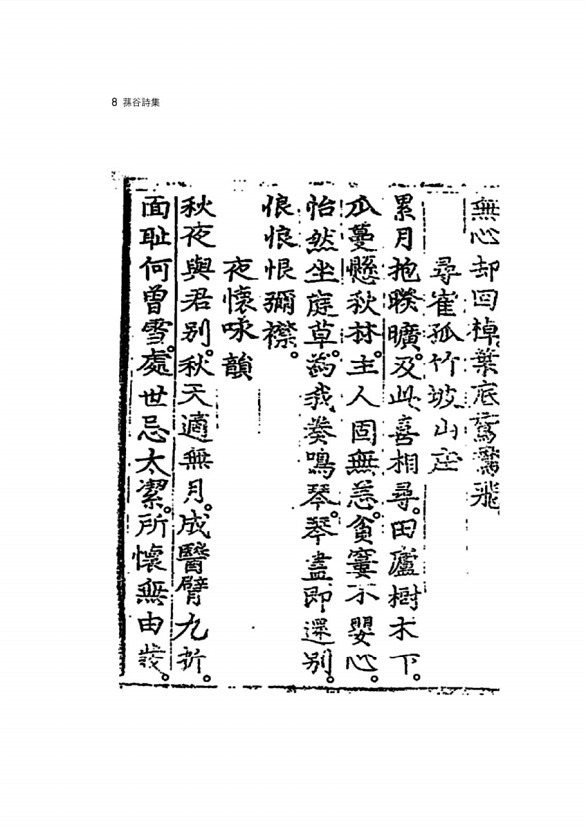 8 蓀谷詩集
無心却回棹葉底飛
尋崔孤竹坡山庄
累月抱暌曠。及此喜相尋。田廬樹木下。
瓜蔓懸秋林。主人固無恙。貧窶不嬰心。
怡然坐庭草。爲我奏鳴琴。琴盡即還別。
悢悢恨彌襟。
夜懷咏韻
秋夜與君別。秋天適無月。成醫臂九折。
面耻何曾雪。處世忌太潔。所懷無由發。